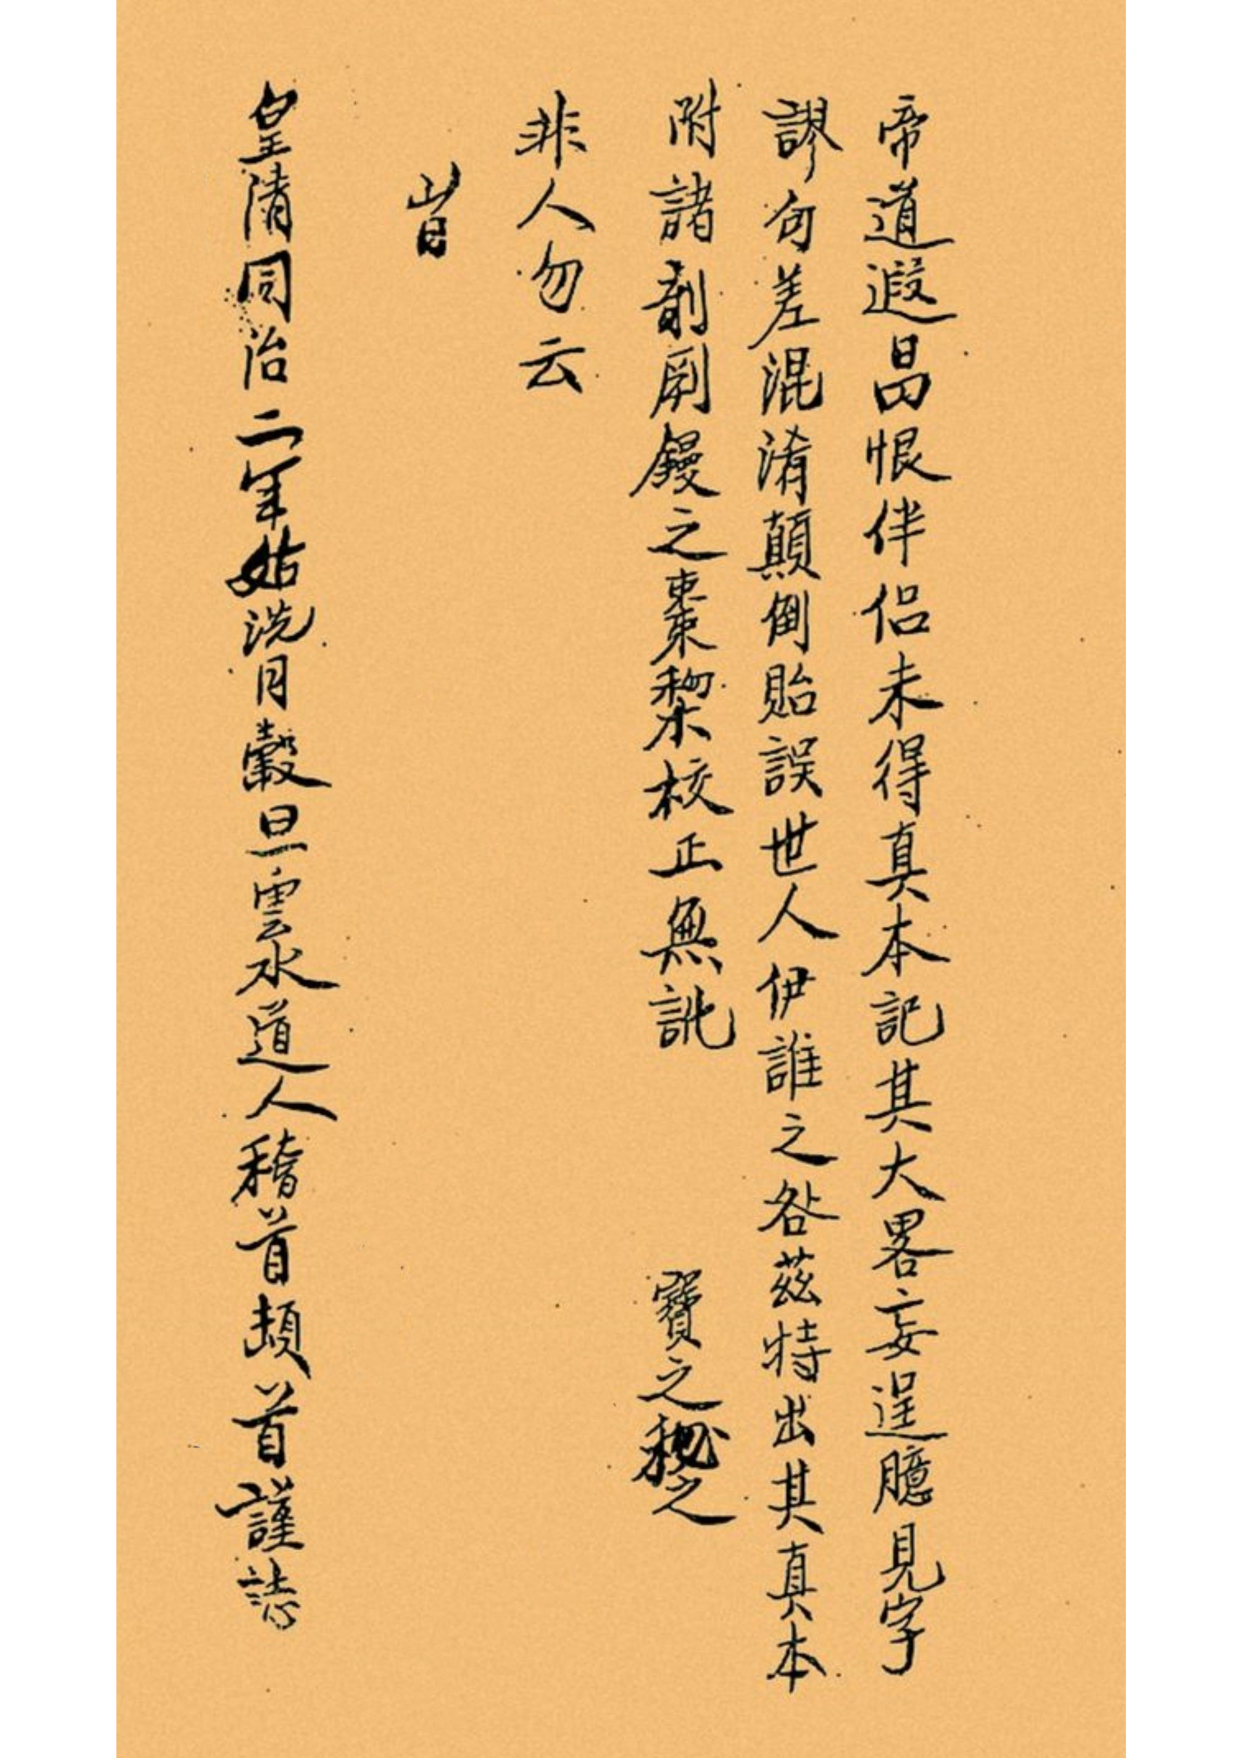 帝道遐昌恨伴侣未得真本記其大畧妄逞臆見字
謬句差混淆顛倒貽誤世人伊誰之咎茲特出其真本
附諸剞劂鋟之棗棃校正無訛 寶之秘之
非人勿云
旹
皇清同治二年姑洗月穀旦雲水道人稽首頓首謹誌